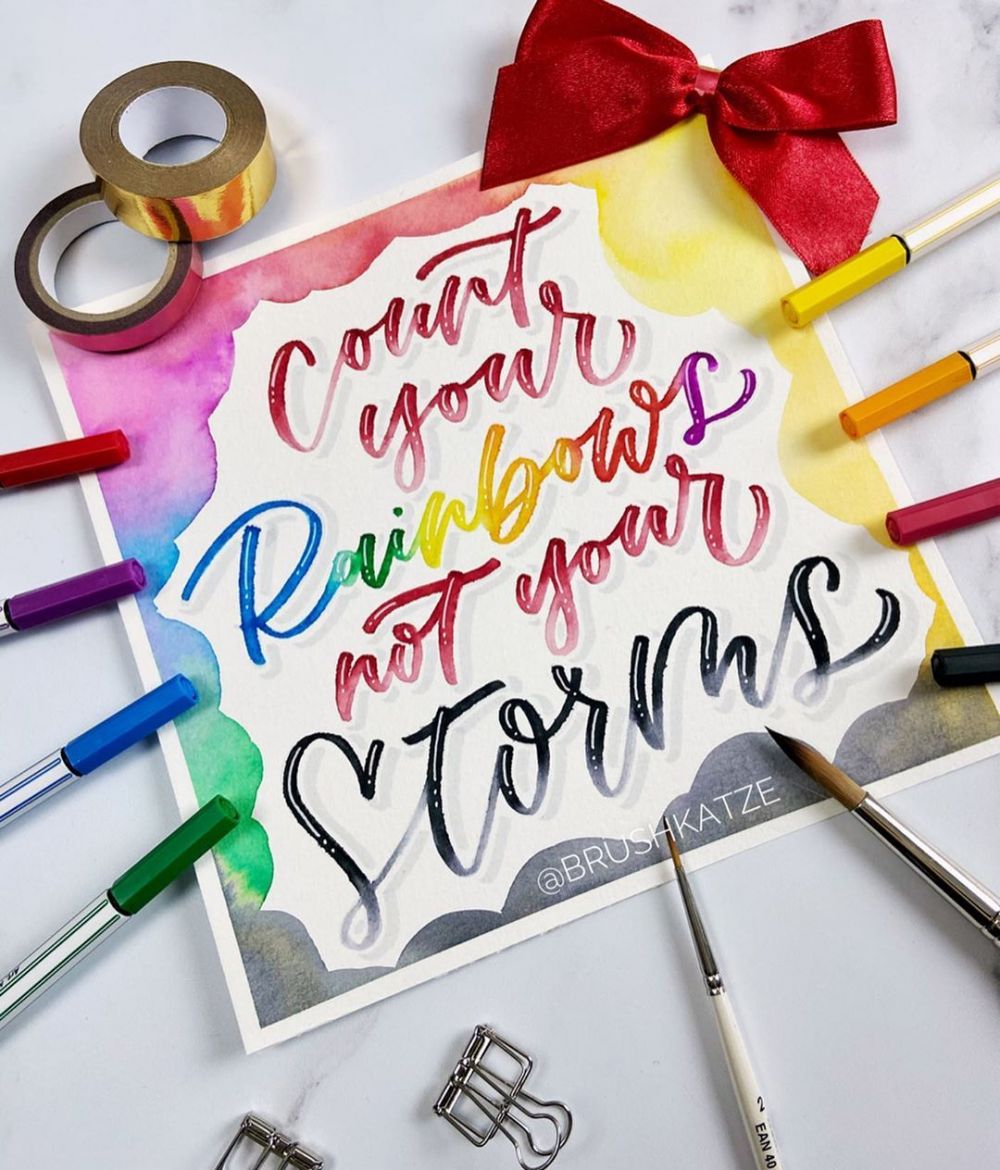 Count
your
Rainbows
not your
Storms
@BRUSHKATZE
2
EAN 40